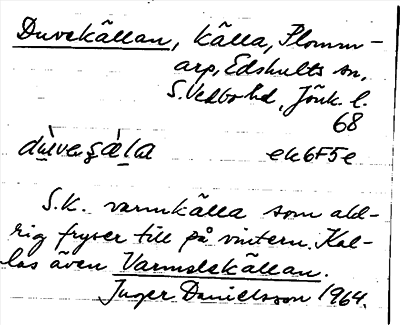 Duvekällan, källa, Plomm-
arp, Edshults sn,
S. Vedbo hd, Jönk. l.
68
dùvɐʂàla ek6F5e
S.k. varmkälla som ald-
rig fryser till på vintern. Kal-
las även Varmelskällan.
Inger Danielsson 1964.